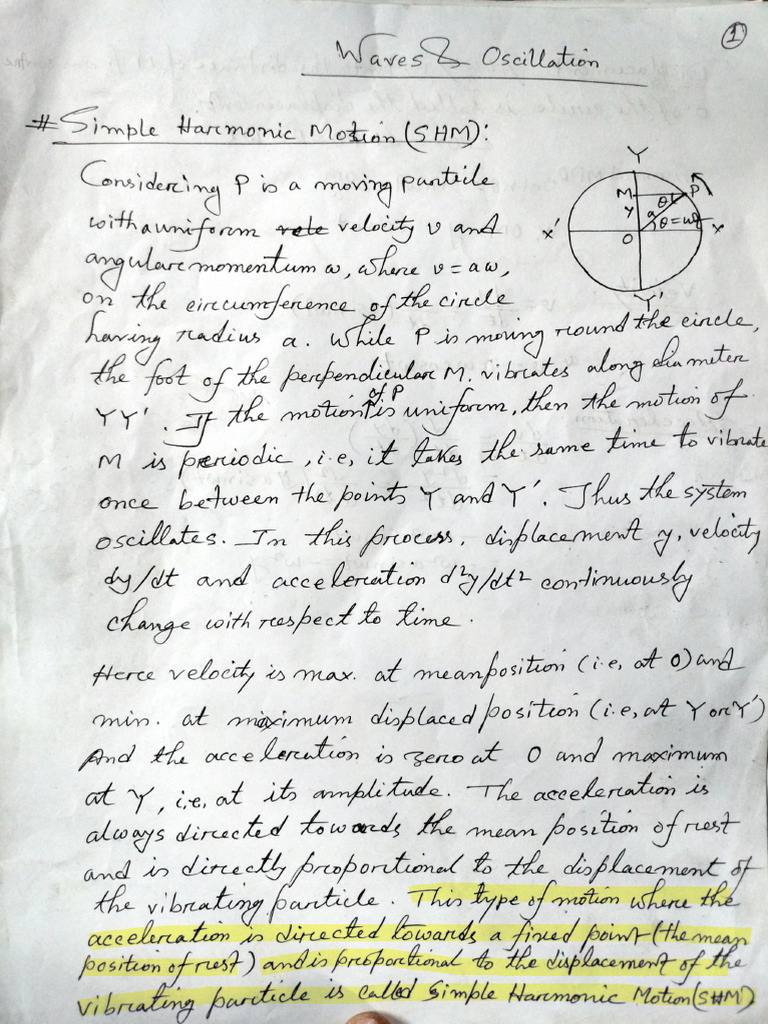 1
Waves & Oscillation
# Simple Harmonic Motion (SHM):
Considering P is a moving particle
with a uniform velocity v and
angular momentum ω, where v = aω,
on the circumference of the circle
having radius a. While P is moving round the circle,
the foot of the perpendicular M. vibrates along diameter
YY'. If the motion of P is uniform, then the motion of
M is periodic, i.e, it takes the same time to vibrate
once between the points Y and Y'. Thus the system
oscillates. In this process, displacement y, velocity
dy/dt and acceleration d²y/dt² continuously
change with respect to time.
Here velocity is max. at mean position (i.e, at O) and
min. at maximum displaced position (i.e, at Y or Y')
And the acceleration is zero at O and maximum
at Y, i.e, at its amplitude. The acceleration is
always directed towards the mean position of rest
and is directly proportional to the displacement of
the vibrating particle. This type of motion where the
acceleration is directed towards a fixed point (the mean
position of rest) and is proportional to the displacement of the
vibrating particle is called Simple Harmonic Motion (SHM)
Y
M θ P
y a θ=ωt
X' O X
Y'